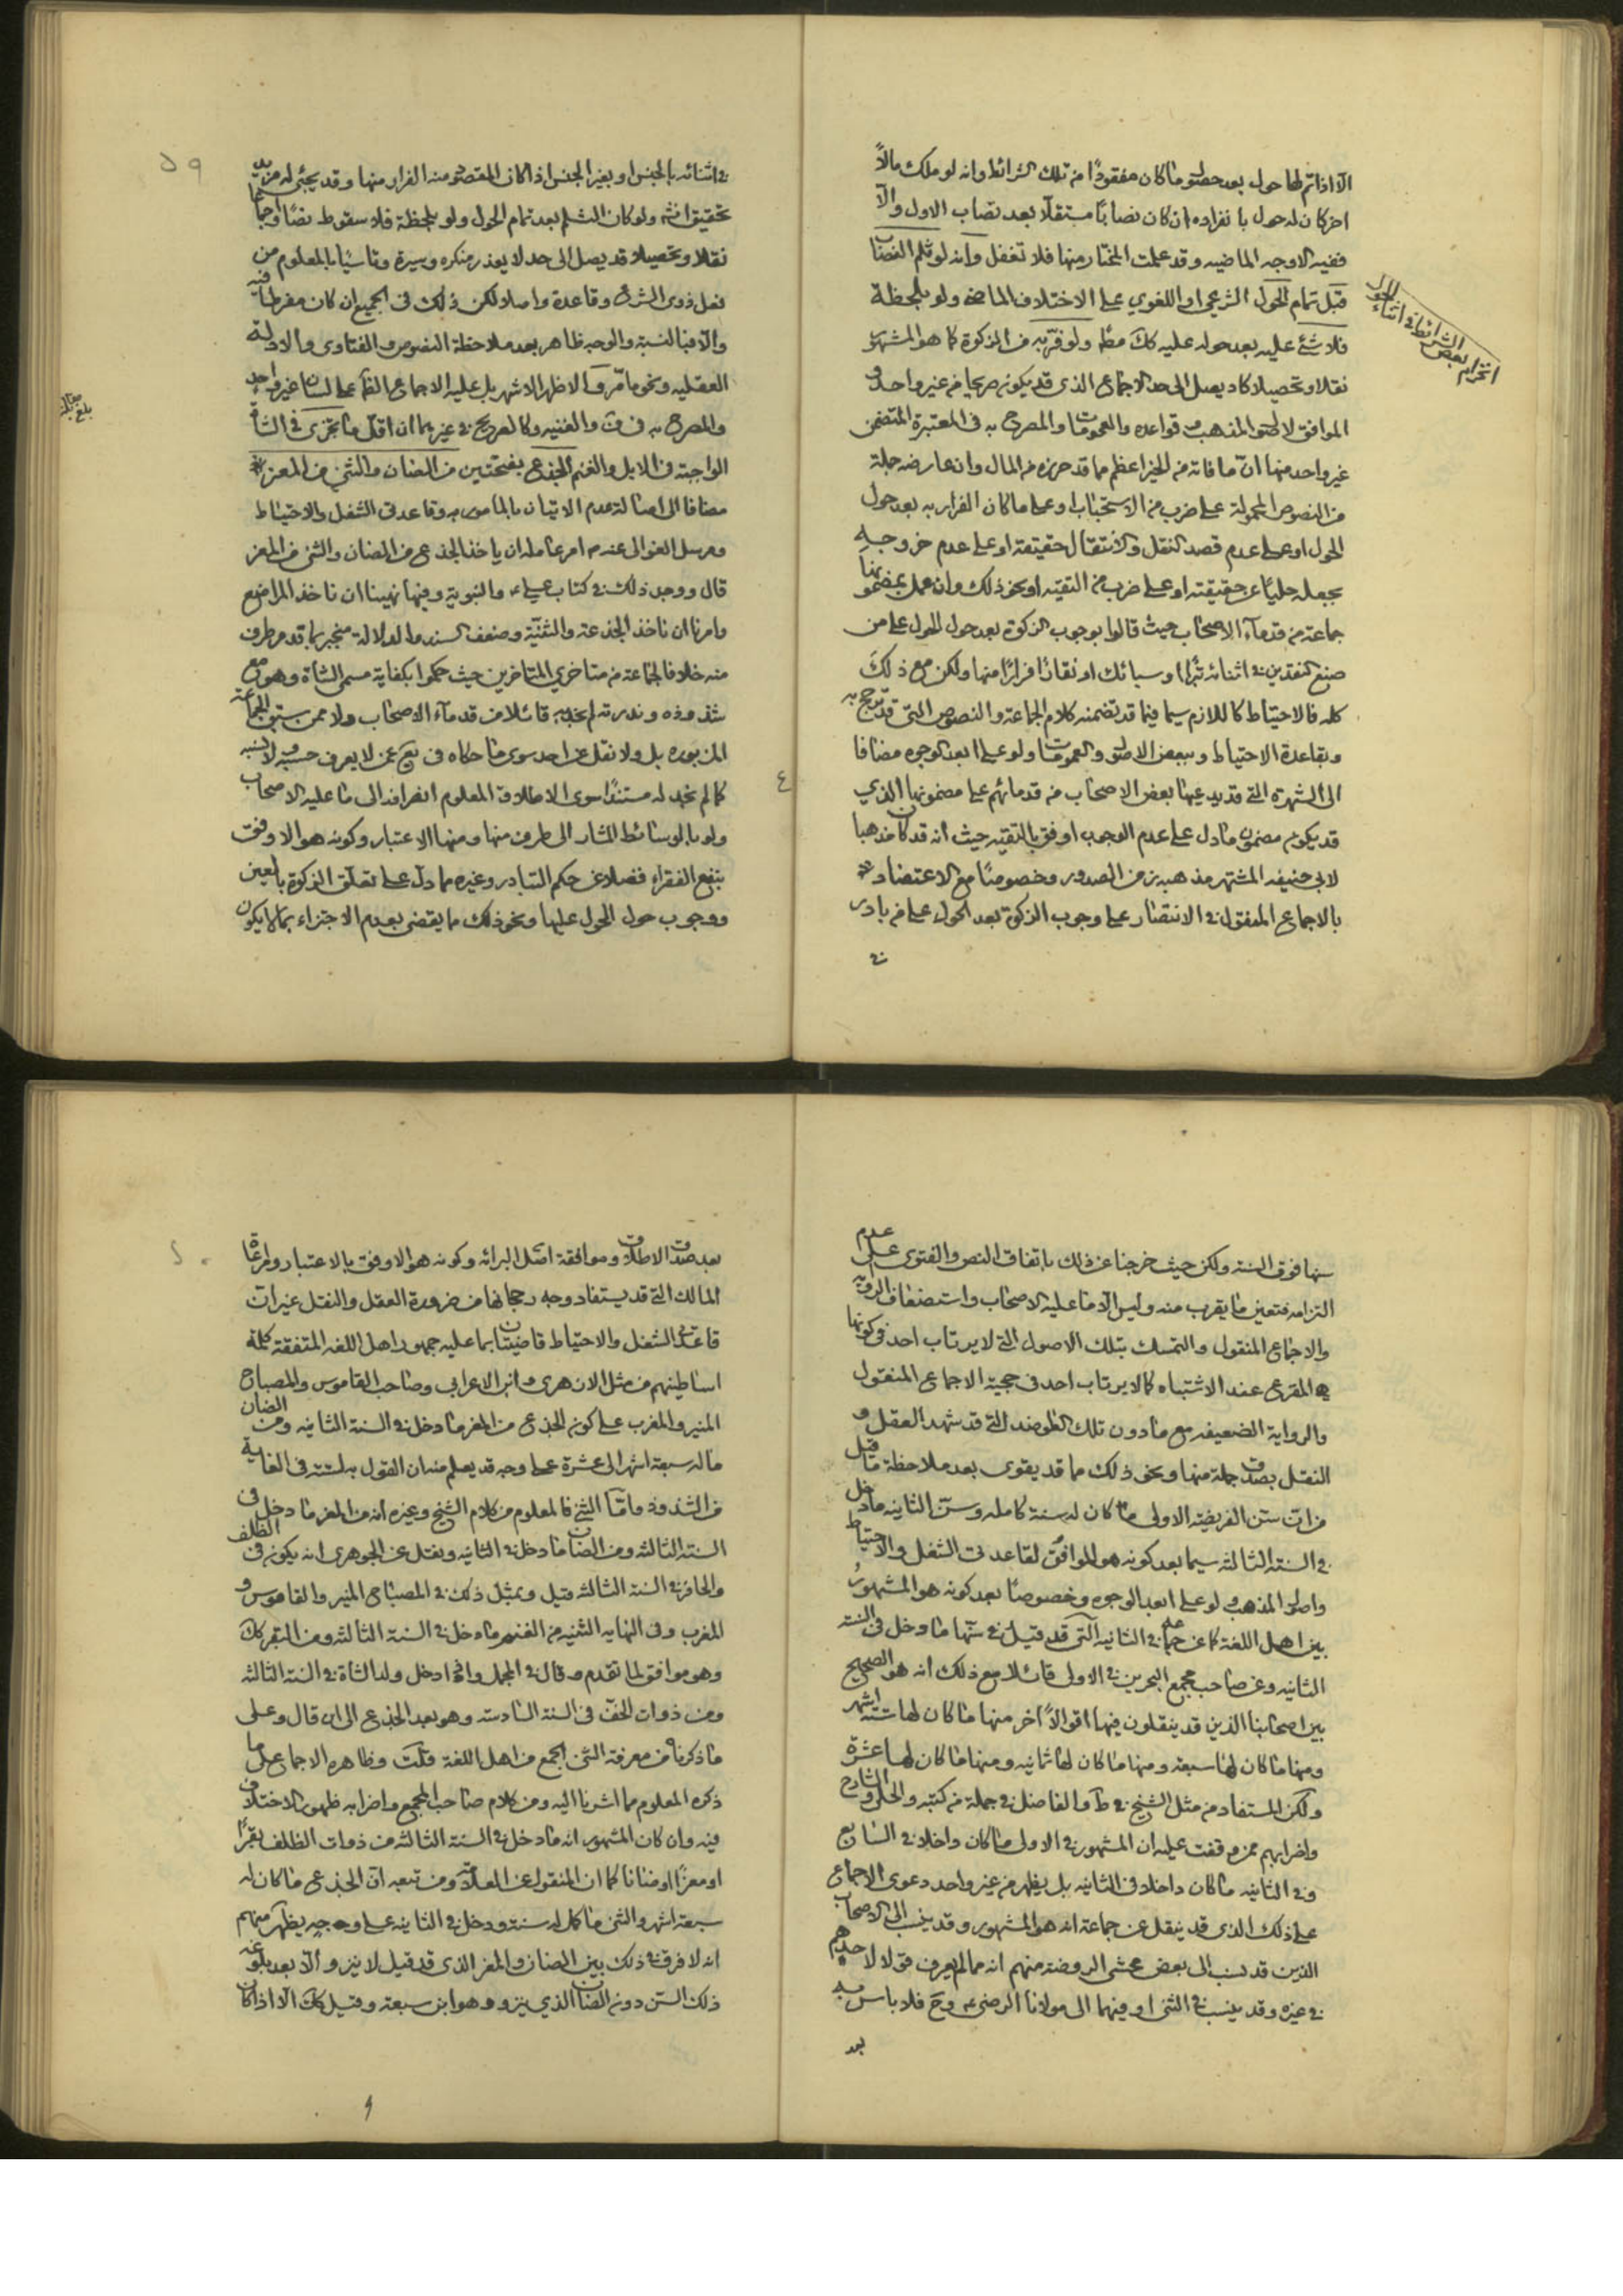 الا اذا تم لها حول بعد حصول ما كان مفقودا من تلك الشرائط وانه لو ملك مالاً
اخر كان له حول بانفراده ان كان نصابًا مستقلاً بعد نصاب الاول والّا
ففيه الاوجه الماضيه وقد علمت المختار منها فلا تغفل وانه لو ثلم النصاب
قبل تمام الحول الشرعي او اللغوي على الاختلاف الماضي ولو بلحظة
فلا شئ عليه بعد حوله عليه كك مطم ولو فرّ به من الزكوة كما هو المشهور
نقلا وتحصيلا كاد يصل الى حد الاجماع الذي قد يكون صريحا من غير واحد و
الموافق لاصول المذهب و قواعده والعمومات والمصرح به في المعتبرة المتضمن
غير واحد منها ان ما فاته من الخير اعظم مما قد حرزه من المال وان عارضه جملة
من النصوص المحمولة على ضرب من الاستحباب او على ما كان الفرار به بعد حول
الحول او على عدم قصد النقل والانتقال حقيقة او على عدم خروجه
بجعله حليًا عن حقيقته او على ضرب من التقيه او نحو ذلك وان عمل بمضمونها
جماعة من قدماء الاصحاب حيث قالوا بوجوب الزكوة بعد حول الحول على من
صنع النقدين في اثنائه تبرًا او سبائك او نقارًا فرارًا منها ولكن مع ذلك
كله فالاحتياط كاللازم سيما فيما قد تضمنه كلام الجماعة والنصوص التي قد ترجح به
وبقاعدة الاحتياط وببعض الاصول والعمومات ولو على ابعد الوجوه مضافا
الى الشهرة التي قد يدعيها بعض الاصحاب من قدمائهم على مضمونها الذي
قد يكون مضمون ما دل على عدم الوجوب اوفق بالتقيه حيث انه قد كان مذهبا
لابي حنيفه المشتهر مذهبه زمن الصدور وخصوصًا مع الاعتضاد
بالاجماع المنقول في الانتصار على وجوب الزكوة بعد الحول على من بادر
في
انخرام بعض الشرائط في اثناء الحول
٥٩
في اثنائه بالجنس او بغير الجنس اذا كان المقصود منه الفرار منها وقد يجئ له مزيد
تحقيق انش ولو كان الثلم بعد تمام الحول ولو بلحظة فلا سقوط نصًا واجماعًا
نقلا وتحصيلا قد يصل الى حد لا يعذر منكره وسيرة وتاسّيًا بالمعلوم من
فعل ذوي الشرف وقاعدة واصلا ولكن ذلك في الجميع ان كان مفرطا فيه
والا فبالنسبة والوجه ظاهر بعد ملاحظة النصوص والفتاوى والادلة
العقليه ونحو ما مّر والاظهر الاشهر بل عليه الاجماع الظ على لسان غير واحد
والمصرح به في ف والغنيه وكالصريح في غيرهما ان اقل ما تجزى في الشاة
الواجبة في الابل والغنم الجذع بفتحتين من الضان والثني من المعز
مضافا الى اصالة عدم الاتيان بالمامور به وقاعدتي الشغل والاحتياط
ومرسل الغوالى عنه ص امر عامله ان ياخذ الجذع من الضان والثني من المعز
قال ووجد ذلك في كتاب علي ع والنبوية وفيها نهينا ان ناخذ المراضع
وامرنا ان ناخذ الجذعة والثنيّة وضعف السند والدلالة منجبر بما قد مر طرف
منه خلافا لجماعة من متاخري المتاخرين حيث حكموا بكفاية مسمى الشاة وهو مع
شذوذه وندرته لم نجد به قائلا من قدماء الاصحاب ولا ممن سبق الجماعة
المزبوره بل ولا نقل عن احد سوى ما حكاه في يع عمن لا يعرف حسبه ولا نسبه
كما لم نجد له مستندًا سوى الاطلاق المعلوم انصرافه الى ما عليه الاصحاب
ولو بالوسائط المشار الى طرف منها ومنها الاعتبار وكونه هو الاوفق
بنفع الفقراء فضلا عن حكم التبادر وغيره مما دل على تعلق الزكوة بالعين
ووجوب حول الحول عليها ونحو ذلك مما يقضى بعدم الاجتزاء بما لا يكون
بلغ
سنها فوق السنة ولكن حيث خرجنا عن ذلك باتفاق النص والفتوى على عدم
التزامه فتعين ما يقرب منه وليس الا ما عليه الاصحاب واستضعاف الرواية
والاجماع المنقول والتمسك بتلك الاصول التي لا يرتاب احد في كونها
المفزع عند الاشتباه كما لا يرتاب احد في حجية الاجماع المنقول
والرواية الضعيفه مع ما دون تلك العواضد التي قد شهد العقل و
النقل بصدق جملة منها ونحو ذلك مما قد يقوى بعد ملاحظة ما قيل
من ان سن الفريضة الاولى ما كان له سنة كامله وسن الثانيه ما دخل
في السنة الثالثه سيما بعد كونه هو الموافق لقاعدتي الشغل والاحتياط
واصول المذهب ولو على ابعد الوجوه وخصوصًا بعد كونه هو المشهور
بين اهل اللغة كما عن جماعة في الثانيه التي قد قيل في سنّها ما دخل في السنة
الثانيه وعن صاحب مجمع البحرين في الاولى قائلا مع ذلك انه هو الصحيح
بين اصحابنا الذين قد ينقلون فيها اقوالاً اخر منها ما كان لها ستة اشهر
ومنها ما كان لها سبعة ومنها ما كان لها ثمانيه ومنها ما كان لها عشرة
ولكن المستفاد من مثل الشيخ في ط والفاضل في جملة من كتبه والحلي والشارح
واضرابهم ممن وقفت عليه ان المشهور في الاولى ما كان داخلا في السابع
وفي الثانيه ما كان داخلا في الثانيه بل يظهر من غير واحد دعوى الاجماع
على ذلك الذي قد ينقل عن جماعة انه هو المشهور وقد ينسب الى الاصحاب
الذين قد نسب الى بعض محشي الروضة منهم انه مما لم يعرف قولا لاحدهم
في غيره وقد ينسب في الثني او فيهما الى مولانا الرضي ع وح فلا باس به
بعد
بعد صدق الاطلاق وموافقة اصل البرائه وكونه هو الاوفق بالاعتبار ومراعاة
المالك التي قد يستفاد وجه رجحانها من ضرورة العقل والنقل غير ان
قاعدتي الشغل والاحتياط قاضيتان بما عليه جمهور اهل اللغه المتفقة كلمة
اساطينهم من مثل الازهري وابن الاعرابي وصاحب القاموس والمصباح
المنير والمغرب على كون الجذع من المعز ما دخل في السنة الثانيه ومن الضان
ماله سبعة اشهر الى عشرة على وجه قد يعلم منه ان القول بالستة في الغاية
من الشذوذ واما الثني فالمعلوم من كلام الشيخ وغيره انه من المعز ما دخل في
السنة الثالثه ومن الضان ما دخل في الثانيه ونقل عن الجوهري انه يكون في الظلف
والحافر في السنة الثالثه قيل وبمثل ذلك في المصباح المنير والقاموس و
المغرب وفي النهايه الثنيه من الغنم ما دخل في السنة الثالثه ومن البقر كك
وهو موافق لما تقدم وقال في المجمل واذا دخل ولد الشاة في السنة الثالثه
ومن ذوات الخف في السنة السادسه وهو بعد الجذع الى ان قال وعلى
ما ذكرناه من معرفة الثني الجمع من اهل اللغة قلت وظاهره الاجماع على ما
ذكره المعلوم مما اشرنا اليه ومن كلام صاحب المجمع واضرابه ظهور الاختلاف
فيه وان كان المشهور انه ما دخل في السنة الثالثه من ذوات الظلف بقرًا
او معزًا او ضانا كما ان المنقول عن العلامة ومن تبعه ان الجذع ما كان له
سبعة اشهر والثني ما كمل له سنة ودخل في الثانيه على وجه يظهر منهم
انه لا فرق في ذلك بين الضان والمعز الذي قد قيل لا ينزو الّا بعد بلوغه
ذلك السن دون الضان الذي ينزو وهو ابن سبعة وقيل كك الا اذا كان